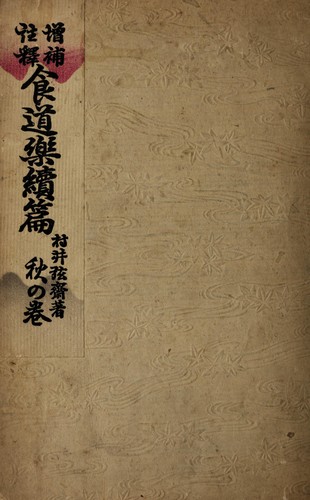 増補
註釋
食道樂續篇
村井弦齋著
秋の巻